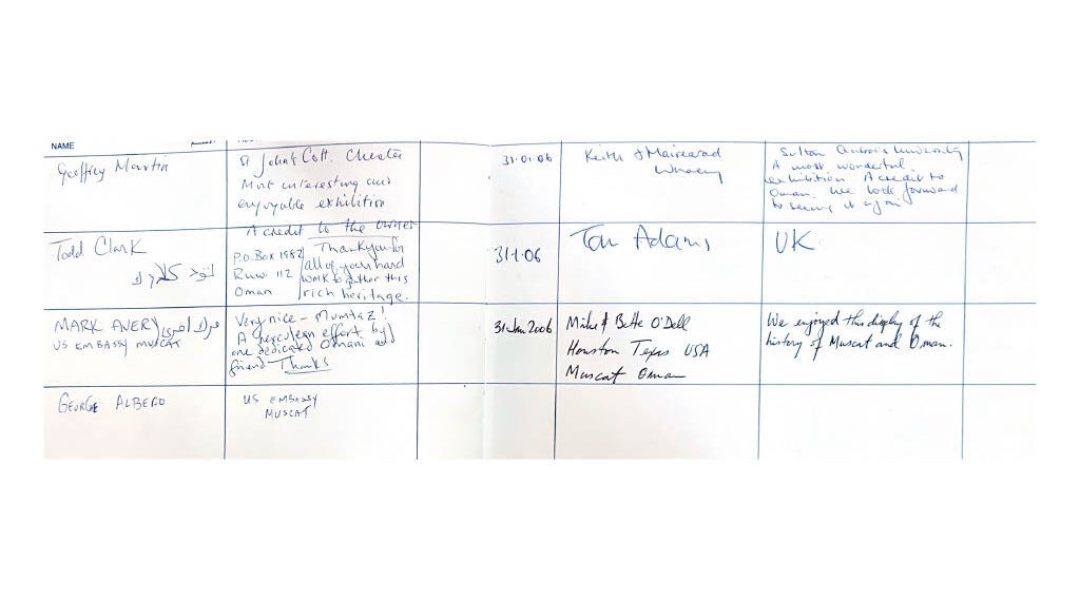 NAME
Geoffrey Martin
St John's Coll. Chester
Most interesting and
enjoyable exhibition
A credit to the owner
Todd Clark
تود كلارك
P.O. Box 1982
Ruwi 112
Oman
Thank you for
all of your hard
work to gather this
rich heritage.
MARK AVERY
US EMBASSY MUSCAT
Very nice - Mumtaz!
A herculean effort by
one dedicated Omani and
friend Thanks
GEORGE ALBERO
US EMBASSY
MUSCAT
31-01-06
Keith & Mairearad
Sultan Qaboos University
A most wonderful
exhibition A credit to
Oman. We look forward
to seeing it again
31-1-06
Tom Adams
UK
31 Jan 2006
Mike & Bette O'Dell
Houston Texas USA
Muscat Oman
We enjoyed this display of the
history of Muscat and Oman.